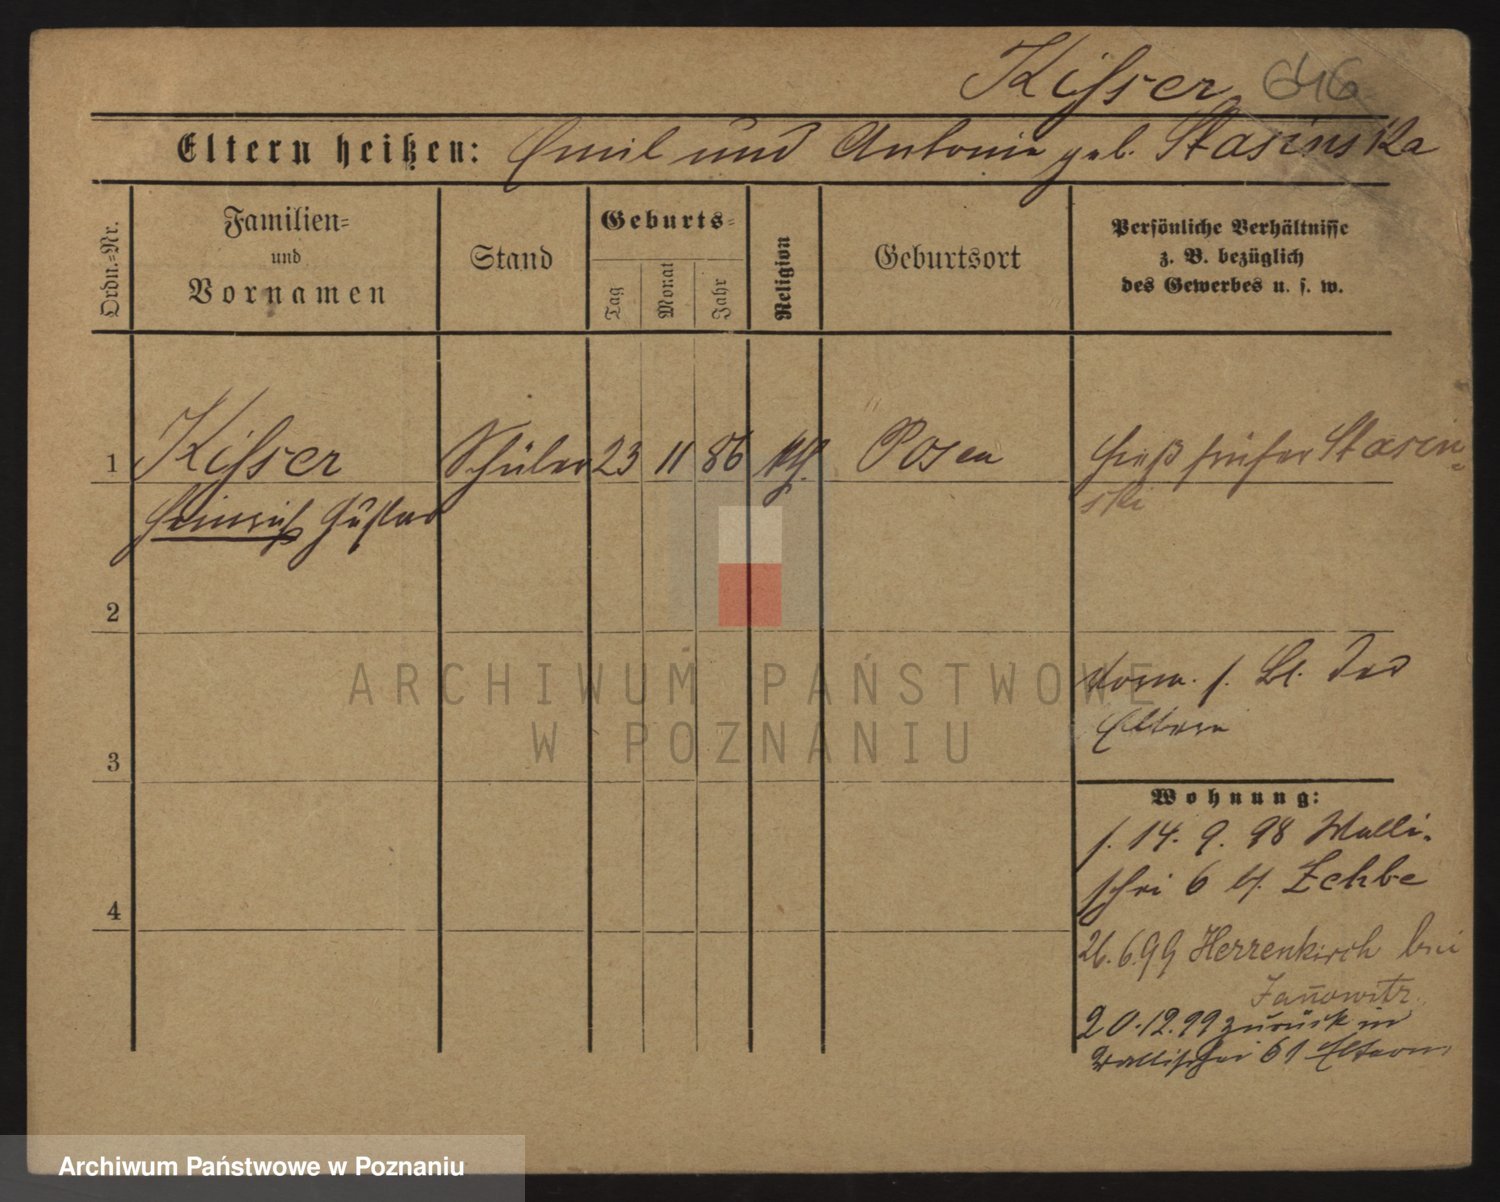 Kisser 646
Eltern heißen: Emil und Antonie geb. Stasinska
Ordn.=Nr.
Familien= und Vornamen
Stand
Geburts=
Tag
Monat
Jahr
Religion
Geburtsort
Persönliche Verhältnisse
z. B. bezüglich
des Gewerbes u. s. w.
1 Kisser Schüler 23 11 86 kth. Posen hieß früher Stasin=
ski
Heinrich Gustav
2
Vorm. s. Bl. der
Eltern
3
Wohnung:
s. 14. 9. 98 Walli-
schei 6 bei
4
26. 6. 99 Herrenkirch bei
Janowitz
20. 12. 99 zurück in
Wallischei 61 Eltern
ARCHIWUM PAŃSTWOWE
W POZNANIU
Archiwum Państwowe w Poznaniu